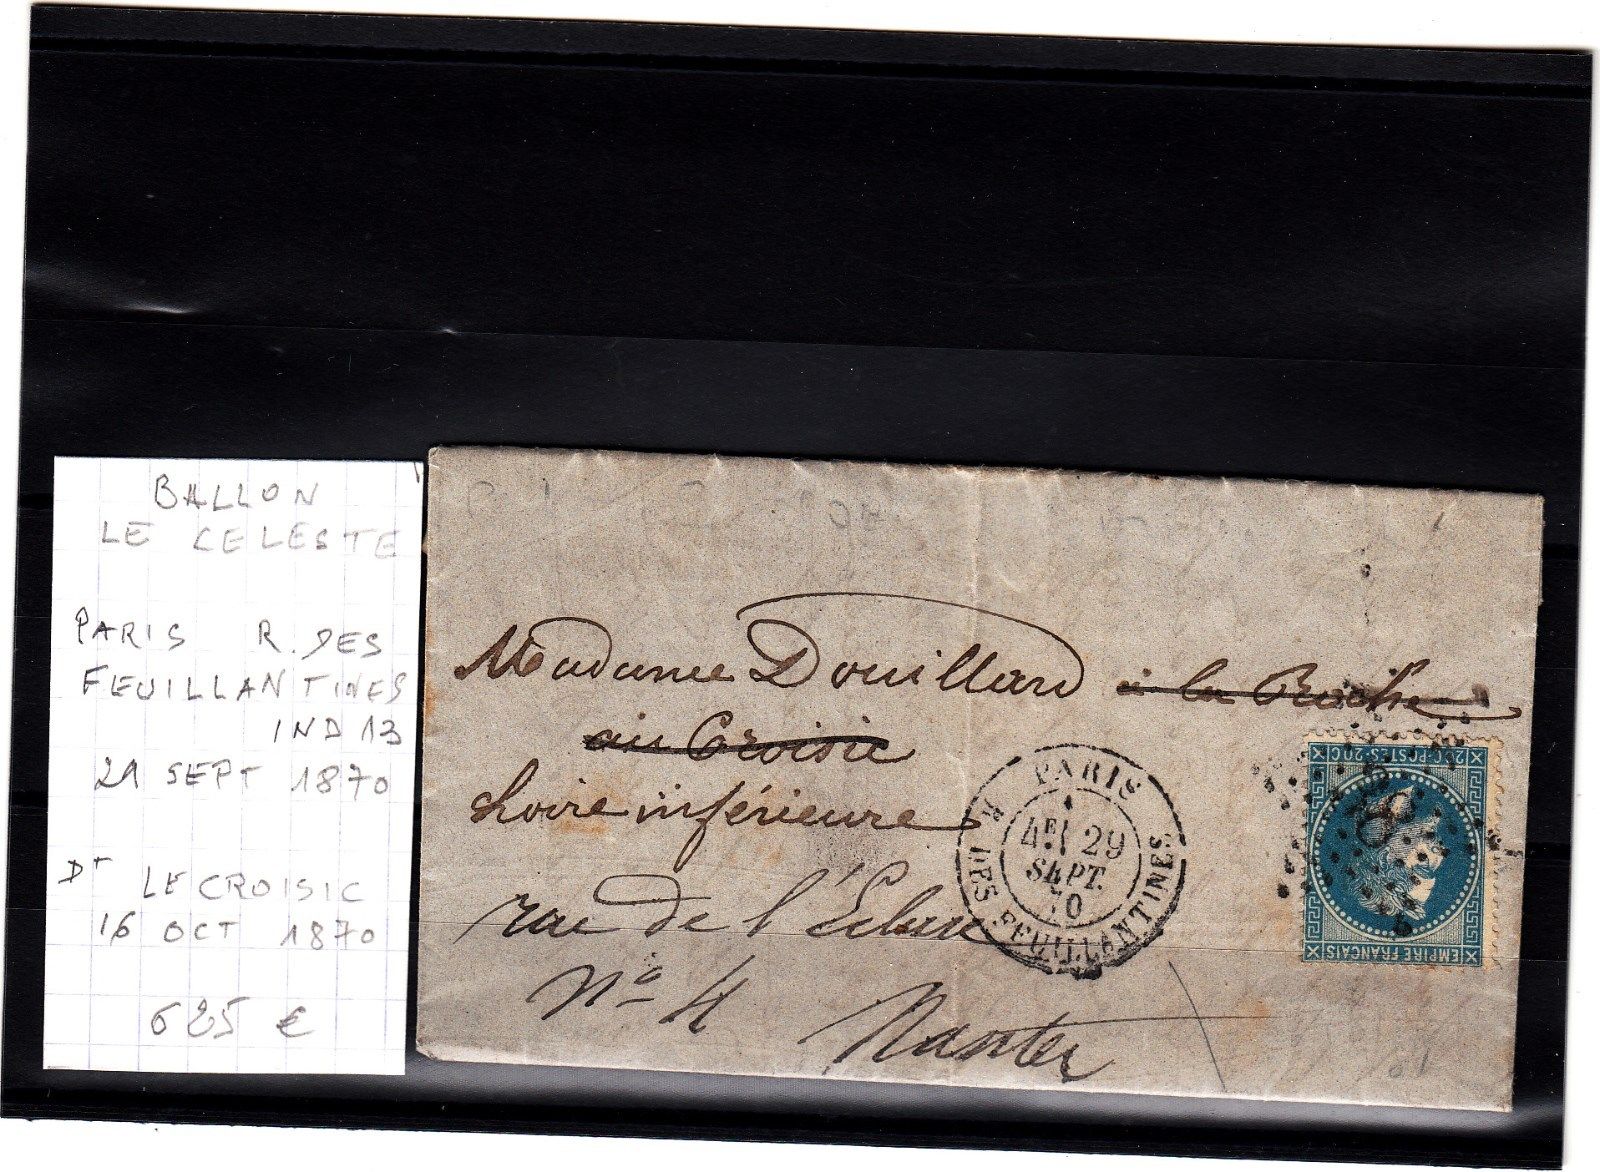 BALLON
LE CELESTE
PARIS R. DES
FEUILLANTINES
IND 13
29 SEPT 1870
DT LE CROISIC
16 OCT 1870
625 €
Madame Douillard à la Roche
au Croisic
Loire inférieure
rue de l'Ecluse
no 4 Nantes
PARIS
4E 29
SEPT.
70
R. DES FEUILLANTINES
20 C - POSTES - 20 C
EMPIRE FRANÇAIS